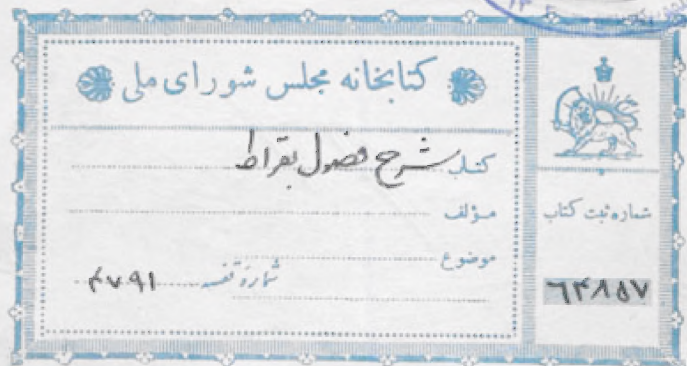 کتابخانه مجلس شورای ملی
کتاب شرح فصول بقراط
مؤلف
موضوع
شمارهٔ قفسه ۴۷۹۱
شماره ثبت کتاب
۶۴۸۵۷